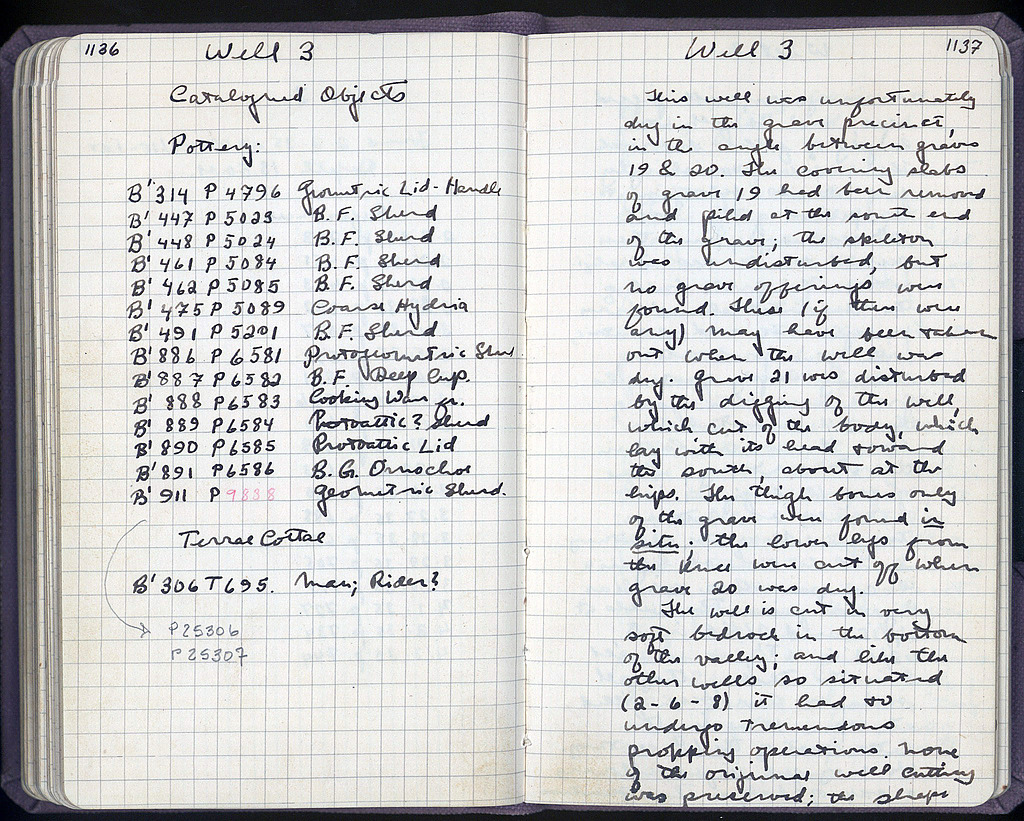 1136
Well 3
Catalogued Objects
Pottery:
B' 314 P 4796 Geometric Lid-Handle
B' 447 P 5023 B.F. Sherd
B' 448 P 5024 B.F. Sherd
B' 461 P 5084 B.F. Sherd
B' 462 P 5085 B.F. Sherd
B' 475 P 5089 Coarse Hydria
B' 491 P 5201 B.F. Sherd
B' 886 P 6581 Protogeometric Sherd
B' 887 P 6582 B.F. Deep Cup.
B' 888 P 6583 Cooking Ware fr.
B' 889 P 6584 Protoattic? Sherd
B' 890 P 6585 Protoattic Lid
B' 891 P 6586 B.G. Oinochoe
B' 911 P 9838 Geometric Sherd.
Terrae Cottae
B' 306 T 695. Man; Rider?
P 25306
P 25307
Well 3
1137
This well was unfortunately
dug in the grave precinct,
in the angle between graves
19 & 20. The covering slabs
of grave 19 had been removed
and piled at the south end
of the grave; the skeleton
was undisturbed, but
no grave offerings were
found. These (if there were
any) may have been taken
out when the well was
dug. Grave 21 was disturbed
by the digging of the well,
which cut off the body, which
lay with its head toward
the south, about at the
hips. The thigh bones only
of the grave were found in
situ; the lower legs from
the knee were cut off when
grave 20 was dug.
The well is cut in very
soft bedrock in the bottom
of the valley; and like the
other wells so situated
(2-6-8) it had to
undergo tremendous
propping operations. None
of the original well cutting
was preserved; the shape